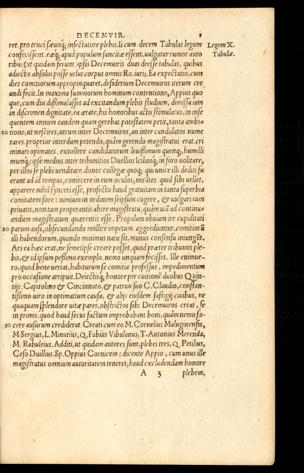 DECEMVIR.
ret pro truci sæuoq; insectatore plebis. Ii cum decem Tabulas legum
Legum X.
consecissent æq; apud populum sancitæ essent, vulgatur rumor auto
Tabulæ.
ribus ut quidam ferunt ipsis Decemuiris duas deesse tabulas, quibus
adiectis absolui posse uelut corpus omnis Ro. iuris. Ea expectatio, cum
dies comitiorum appropinquaret, desiderium Decemuiros iterum cre
andi fecit. In maxima summorum hominum contentione, Appius quo
que, cum diu dissimulasset ad excitandum plebis studium, dimissa iam
in discrimen dignitate, ea ætate, his honoribus actis stimulatus, in insé
quentem annum eandem quam gerebat potestatem petit, tanta ambi-
10 tione, ut nescires, utrum inter Decemuiros, an inter candidatos nume
rares. propior interdum petendo, quàm gerendo magistratui erat. cri
minari optimates, extollere candidatorum leuissimum quenq; humilli
mumq; ipse medius inter tribunitios Duellios Iciliosq; in foro uolitare,
per illos se plebi uenditare, donec collegæ quoq; qui unice illi dediti fu
erant ad id tempus, coniecere in eum oculos, mirates quid sibi uellet,
apparere nihil synceri esse, profecto haud gratuitam in tanta superbia
comitatem fore: nimium in ordinem seipsum cogere, & uulgari cum
priuatis, non tam properantis abire magistratu, quàm uiã ad continu-
andum magistratum quærentis esse. Propalam obuiam ire cupiditati
20 parum ausi, obsecundando mollire impetum aggrediuntur. comitiorũ
illi habendorum, quando minimus natu sit, munus consensu iniungũt.
Ars ea hæc erat, ne semetipse creare posset, quod præter tribunos ple-
bis, & id ipsum pessimo exemplo, nemo unquam fecisset. Ille enimue-
ro, quod bene uertat, habiturum se comitia professus, impedimentum
pro occasione arripuit. Deiectisq; honore per coitionẽ duobus Quin-
tijs, Capitolino & Cincinnato, & patruo suo C. Claudio, constan-
tissimo uiro in optimatium causa, & alijs eiusdem fastigij ciuibus, ne
quaquam splendore uitæ pares, Decemuiros creat, se
in primis. quod haud secus factum improbabant boni, quàm nemo fa-
30 cere ausurum crediderat. Creati cum eo M. Cornelius Maluginensis,
M. Sergius, L. Minutius, Q. Fabius Vibulanus, T. Antonius Merenda,
M. Rabuleius. Additi, ut quidam autores sunt, plebei tres, Q. Petilius,
Cæso Duillius, Sp. Oppius Cornicem: dicente Appio, cum unus ille
magistratus omnium autoritatem teneret, haud excludendam honore
A 3 plebem,